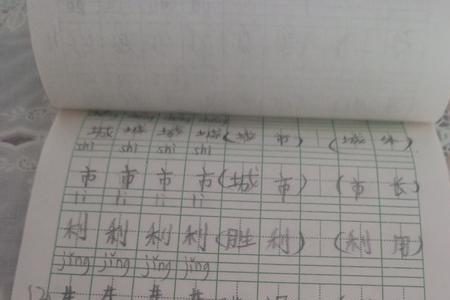 城 城 城 城 (城 市) (城 外)
shì shì shì shì
市 市 市 市 (城 市) (市 长)
lì lì lì lì
利 利 利 利 (胜 利) (利 用)
jǐng jǐng jǐng jǐng